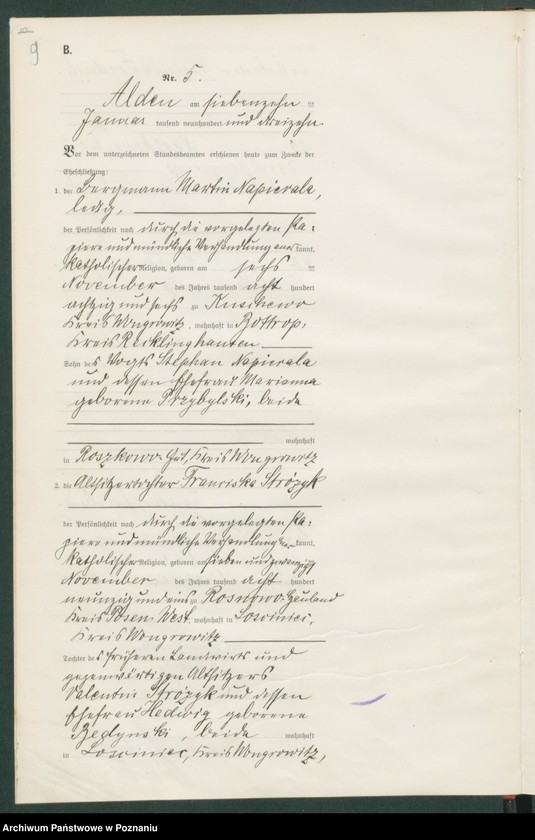 9
B.
Nr. 5.
Alden am siebenzehn ten
Januar tausend neunhundert und dreizehn
Vor dem unterzeichneten Standesbeamten erschienen heute zum Zwecke der
Eheschließung:
1. der Bergmann Martin Napierala,
ledig,
der Persönlichkeit nach durch die vorgelegten Pa-
piere und mündliche Verhandlung aner kannt,
katholischer Religion, geboren am sechs ten
November des Jahres tausend acht hundert
achzig und sechs zu
Kreis Wongrowitz, wohnhaft in Bottrop,
Kreis Recklinghausen
Sohn des Vogts Stephan Napierala
und dessen Ehefrau Marianna
geborene Przybylski, beide
wohnhaft
in Roszkowo Gut, Kreis Wongrowitz
2. die Altsitzertochter Franciska Strózyk
der Persönlichkeit nach durch die vorgelegten Pa-
piere und mündliche Verhandlung aner kannt,
katholischer Religion, geboren am sieben und zwanzig
November des Jahres tausend acht hundert
neunzig und eins zu Rosnowo-Hauland
Kreis Posen West, wohnhaft in
Kreis Wongrowitz
Tochter des früheren Landwirts und
gegenwärtigen Altsitzers
Valentin Strózyk und dessen
Ehefrau Hedwig geborene
beide wohnhaft
in Kreis Wongrowitz,
Archiwum Państwowe w Poznaniu